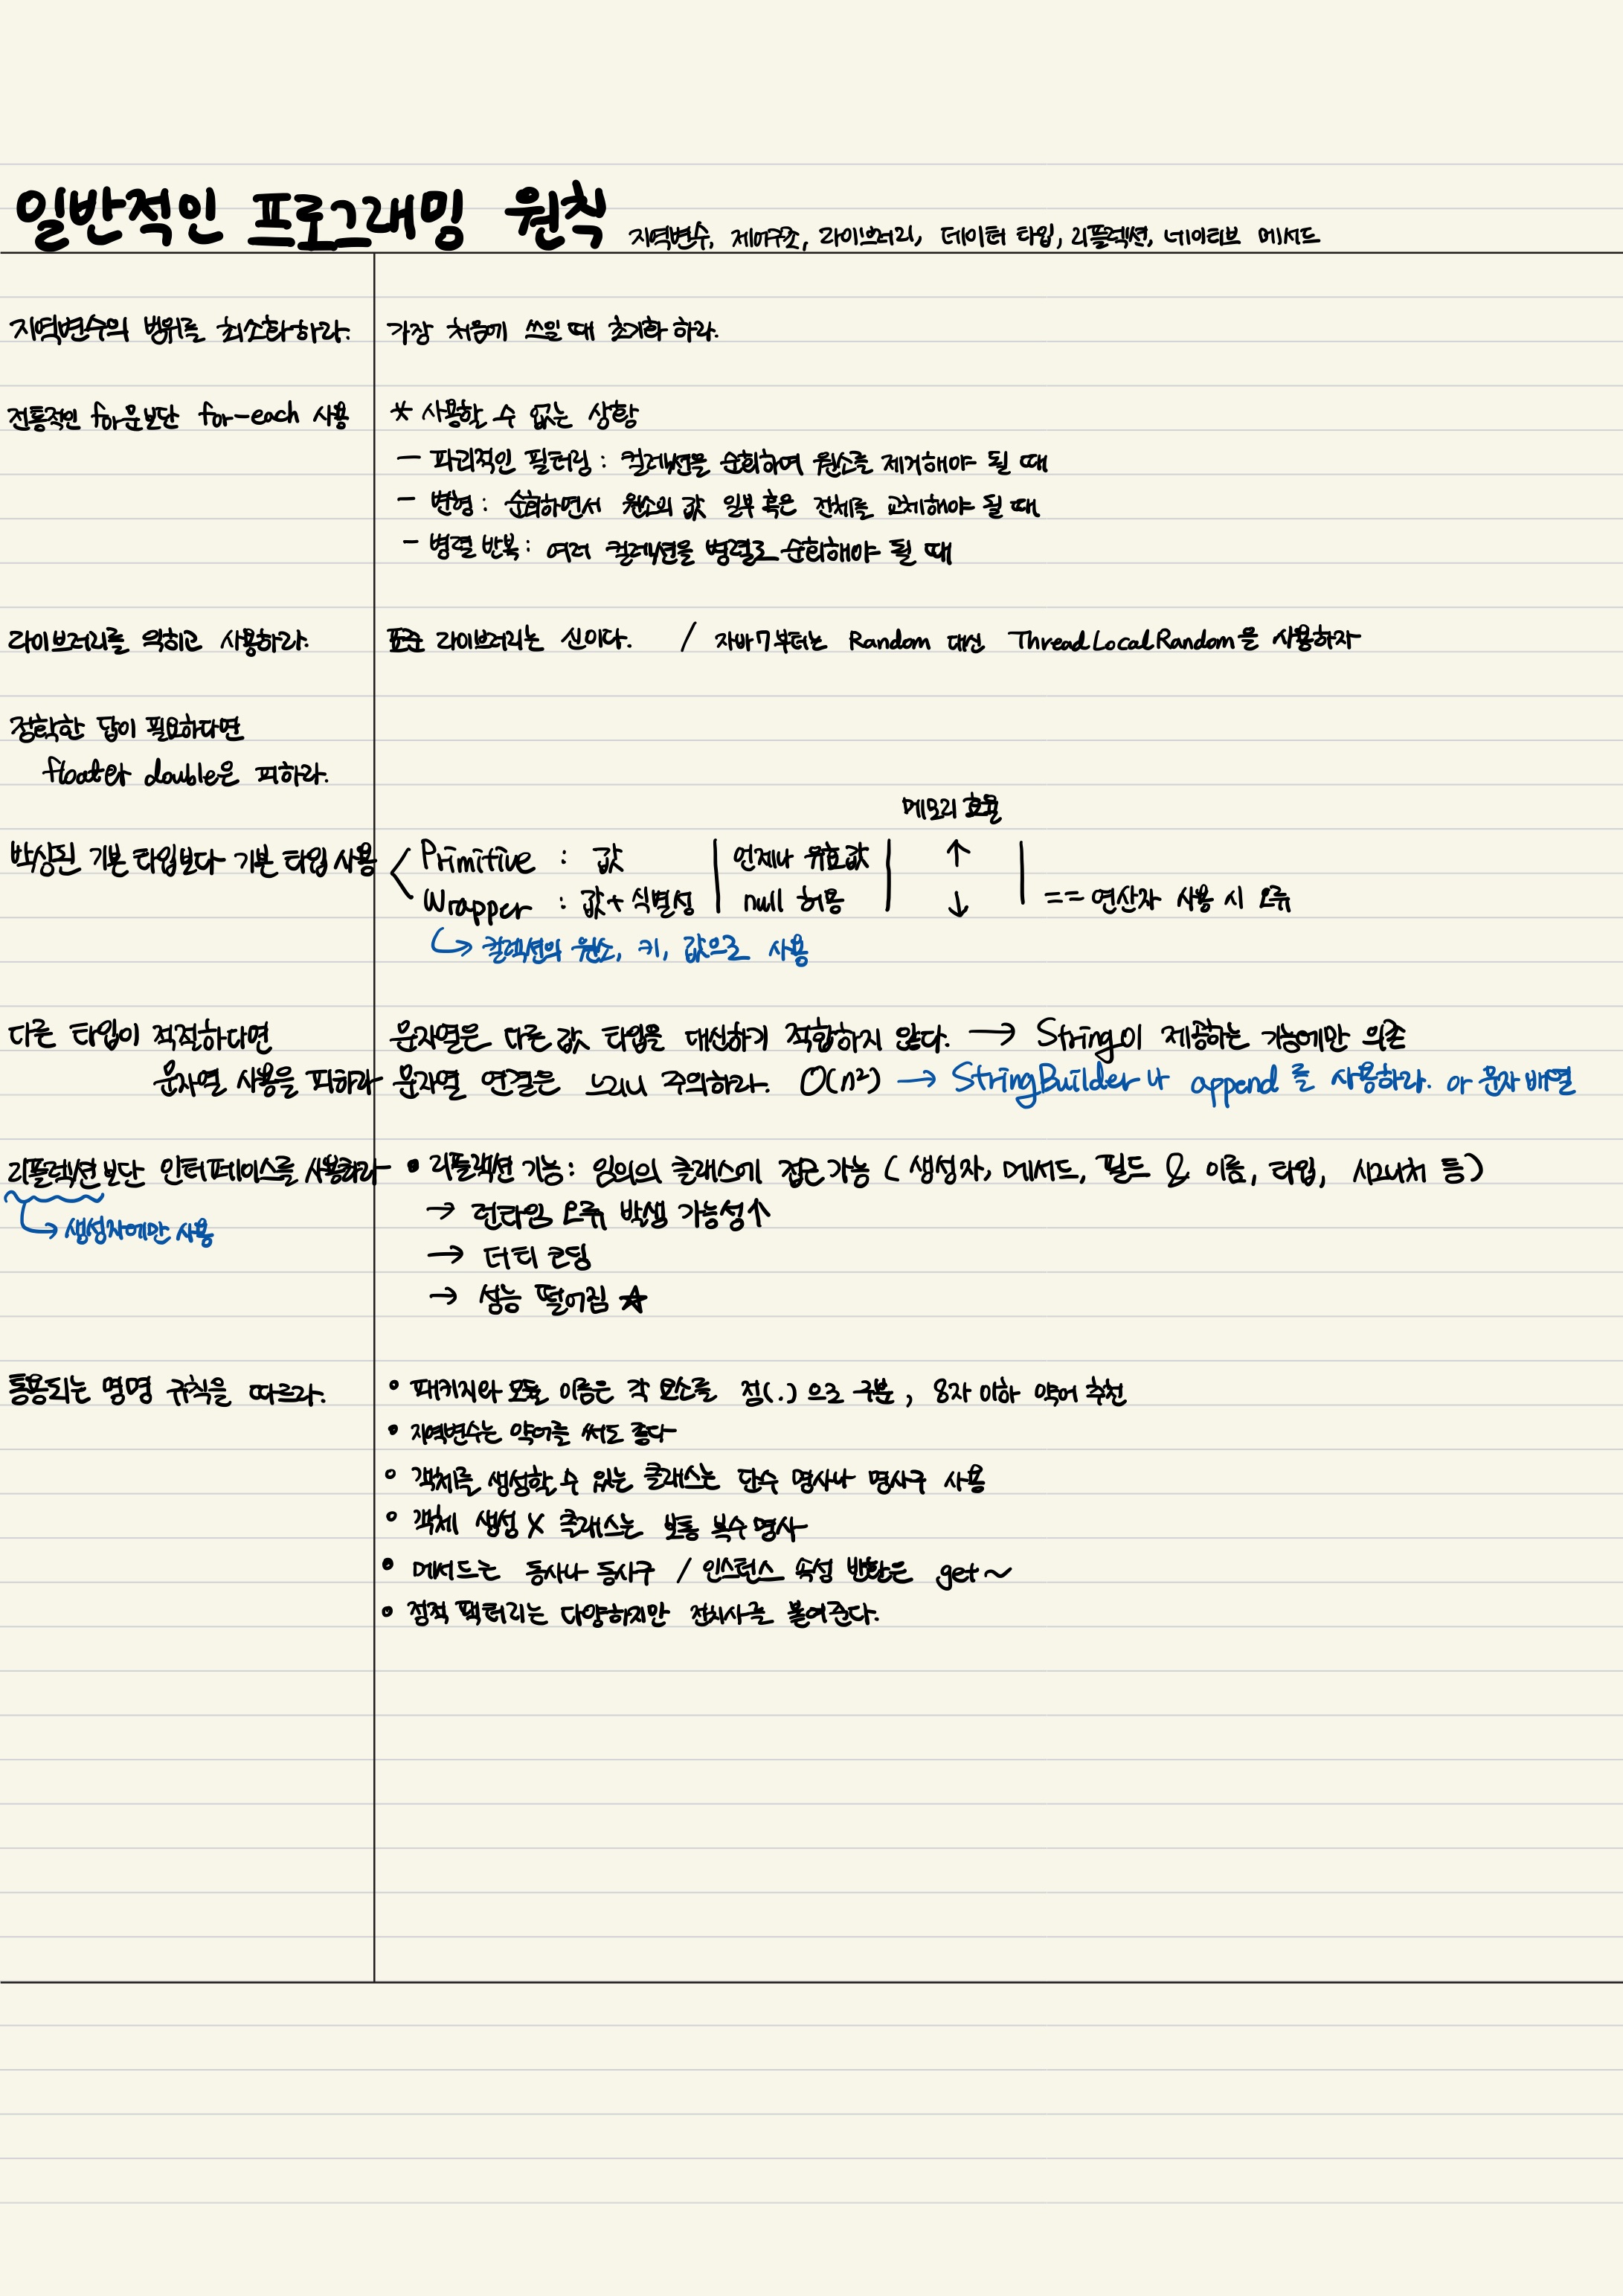 일반적인 프로그래밍 원칙 지역변수, 제어구조, 라이브러리, 데이터 타입, 리플렉션, 네이티브 메서드
지역변수의 범위를 최소화하라. 가장 처음에 쓰일 때 초기화 하라.
전통적인 for문보단 for-each 사용 * 사용할 수 없는 상황
- 파괴적인 필터링 : 컬렉션을 순회하여 원소를 제거해야 될 때
- 변형 : 순회하면서 원소의 값 일부 혹은 전체를 교체해야 될 때
- 병렬 반복 : 여러 컬렉션을 병렬로 순회해야 될 때
라이브러리를 익히고 사용하라. 표준 라이브러리는 신이다. / 자바7부터는 Random 대신 ThreadLocalRandom을 사용하자
정확한 답이 필요하다면
float와 double은 피하라.
메모리 효율
박싱된 기본 타입보다 기본 타입 사용 < Primitive : 값 | 언제나 유효값 | ↑ |
Wrapper : 값+식별성 | null 허용 | ↓ | == 연산자 사용 시 오류
↳ 컬렉션의 원소, 키, 값으로 사용
다른 타입이 적절하다면 문자열은 다른 값 타입을 대신하기 적합하지 않다. → String이 제공하는 기능에만 의존
문자열 사용을 피하라 문자열 연결은 느리니 주의하라. O(n²) → StringBuilder나 append를 사용하라. or 문자 배열
리플렉션보단 인터페이스를 사용하라 • 리플렉션 기능 : 임의의 클래스에 접근 가능 ( 생성자, 메서드, 필드 & 이름, 타입, 시그니처 등 )
↳ 생성자에만 사용 → 런타임 오류 발생 가능성↑
→ 더티 코딩
→ 성능 떨어짐 ☆
통용되는 명명 규칙을 따르라. • 패키지와 모듈 이름은 각 요소를 점(.)으로 구분 , 8자 이하 약어 추천
• 지역변수는 약어를 써도 좋다
• 객체를 생성할 수 있는 클래스는 단수 명사나 명사구 사용
• 객체 생성 X 클래스는 보통 복수 명사
• 메서드는 동사나 동사구 / 인스턴스 속성 반환은 get~
• 정적 팩터리는 다양하지만 전치사를 붙여준다.